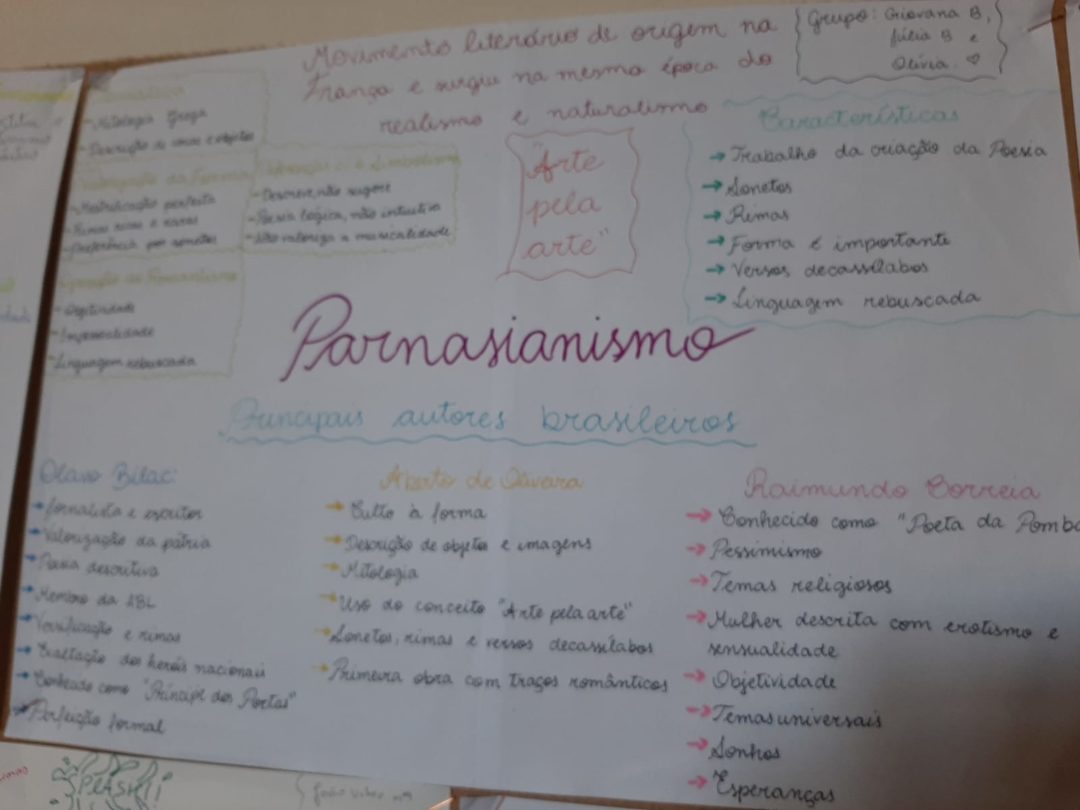 Movimento literário de origem na
França e surgiu na mesma época do
realismo e naturalismo
Grupo: Giovana B,
Júlia B e
Olívia ♡
Temática
- Mitologia Grega
- Descrição de cenas e objetos
Valorização da Forma
- Metrificação perfeita
- Rimas ricas e raras
- Preferência por sonetos
- Descreve, não sugere
- Poesia lógica, não intuitiva
- Não valoriza a musicalidade
Oposição ao Romantismo
- Objetividade
- Impessoalidade
- Linguagem rebuscada
"Arte
pela
arte"
Características
→ Trabalho da criação da Poesia
→ Sonetos
→ Rimas
→ Forma é importante
→ Versos decassílabos
→ Linguagem rebuscada
Parnasianismo
Principais autores brasileiros
Olavo Bilac:
→ Jornalista e escritor
→ Valorização da pátria
→ Poesia descritiva
→ Membro da ABL
→ Versificação e rimas
→ Exaltação dos heróis nacionais
→ Conhecido como "Príncipe dos Poetas"
→ Perfeição formal
Alberto de Oliveira
→ Culto à forma
→ Descrição de objetos e imagens
→ Mitologia
→ Uso do conceito "Arte pela arte"
→ Sonetos, rimas e versos decassílabos
→ Primeira obra com traços românticos
Raimundo Correia
→ Conhecido como "Poeta da Pomba
→ Pessimismo
→ Temas religiosos
→ Mulher descrita com erotismo e
sensualidade
→ Objetividade
→ Temas universais
→ Sonhos
→ Esperanças